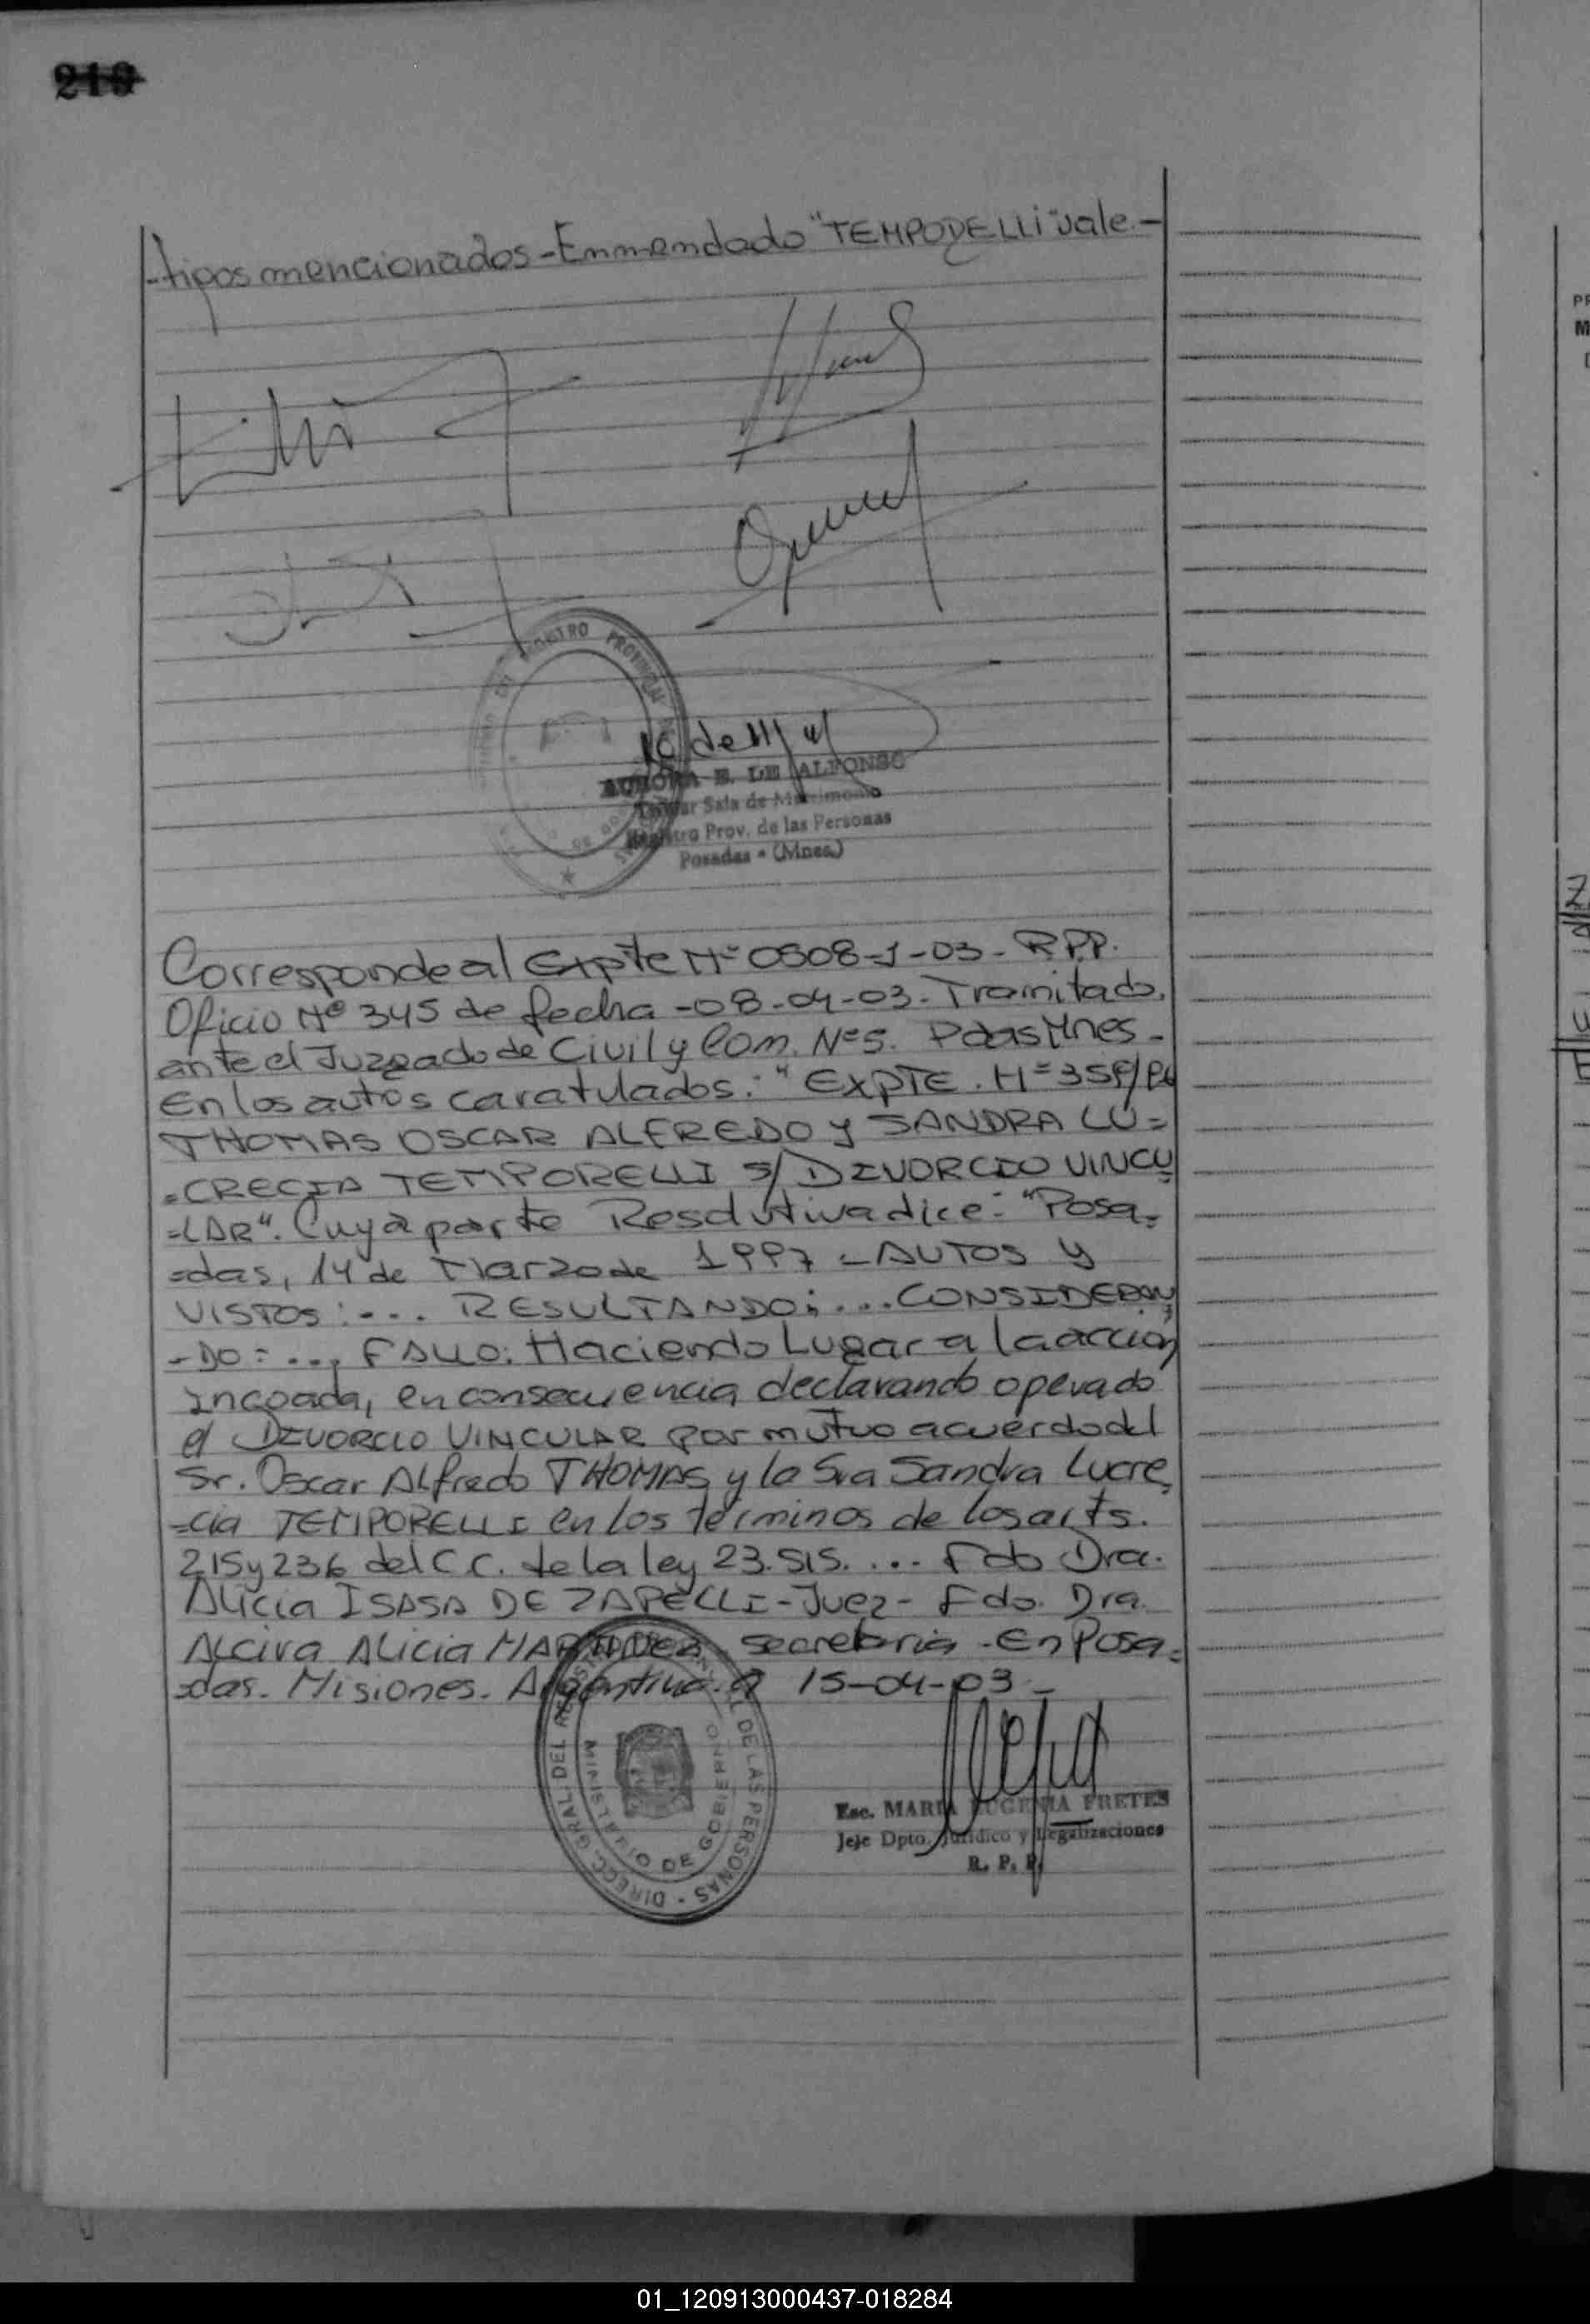 210
-tipos mencionados-Enmendado "TEMPORELLI" vale.-
REGISTRO PROVINCIAL
AURORA E. DE ALFONSO
Sala de Matrimonio
Registro Prov. de las Personas
Posadas - (Mnes.)
Corresponde al Expte Nº 0508-1-03- R.P.P.
Oficio Nº 345 de fecha -08-04-03- Tramitado.
ante el Juzgado de Civil y Com. Nº5. Pdas Mnes-
En los autos caratulados: "EXPTE. Nº
THOMAS OSCAR ALFREDO Y SANDRA LU=
=CRECIA TEMPORELLI S/ DIVORCIO VINCU
=LAR". Cuya parte Resolutiva dice: "Posa=
=das, 14 de Marzo de 1997 - AUTOS Y
VISTOS: ... RESULTANDO: ... CONSIDERAN
-DO: ..., FALLO: Haciendo Lugar a la acción
incoada, en consecuencia declarando operado
el DIVORCIO VINCULAR por mutuo acuerdo del
Sr. Oscar Alfredo THOMAS y la Sra Sandra Lucre=
=cia TEMPORELLI en los términos de los arts.
215 y 236 del C.C. de la ley 23.515. ... Fdo Dra.
Alicia ISASA DE ZAPELLI - Juez - Fdo. Dra.
Alcira Alicia MARTINEZ - secretaria - En Posa=
=das. Misiones. Argentina. a 15-04-03 -
DIRECC. GRAL. DEL REGISTRO PROVINCIAL DE LAS PERSONAS
MINISTERIO DE GOBIERNO
Esc. MARIA EUGENIA FRETES
Jefe Dpto. Jurídico y Legalizaciones
R. P. P.
01_120913000437-018284